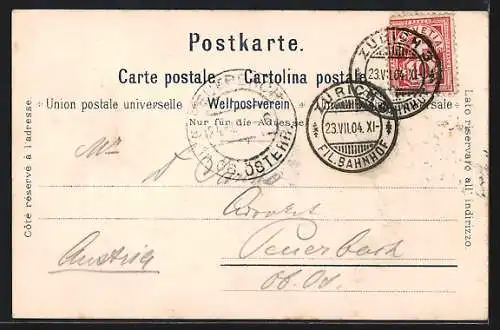 Postkarte.
Carte postale. Cartolina postale
Union postale universelle Weltpostverein
Nur für die Adresse.
Côté réservé à l'adresse.
Lato riservato all' indirizzo.
HELVETIA
ZÜRICH 3
23.VII.04.XI-
ZÜRICH
23.VII.04.XI-
FIL.BAHNHOF
OB. ÖSTERR.
Advokat
Peuerbach
Ob. Ös.
Austria